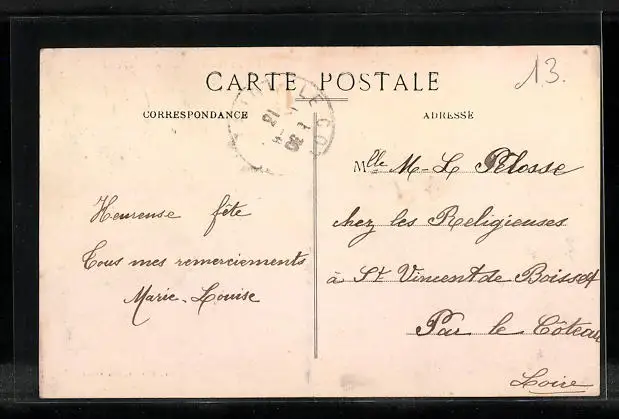 CARTE POSTALE
13.
CORRESPONDANCE
Heureuse fête
Tous mes remerciements
Marie-Louise
ADRESSE
Mlle M-L Pelosse
chez les Religieuses
à St Vincent de Boisset
Par le Côteau
Loire